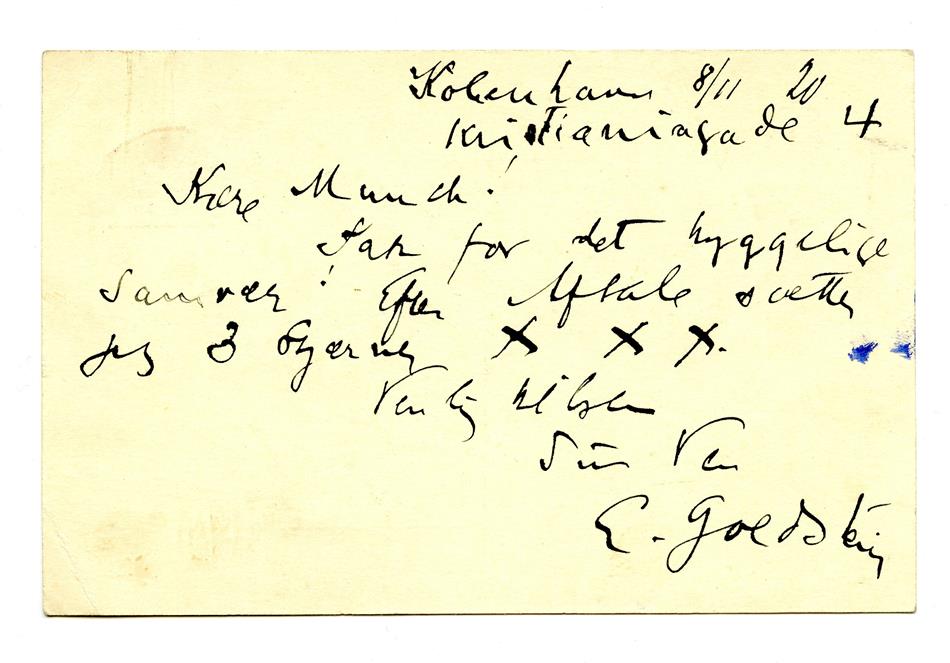 København 8/11 20
Kristianiagade 4
Kære Munch!
Tak for det hyggelige
Samvær! Efter Aftale sætter
jeg 3 Stjerner X X X.
Venlig Hilsen
Din Ven
E. Goldstein